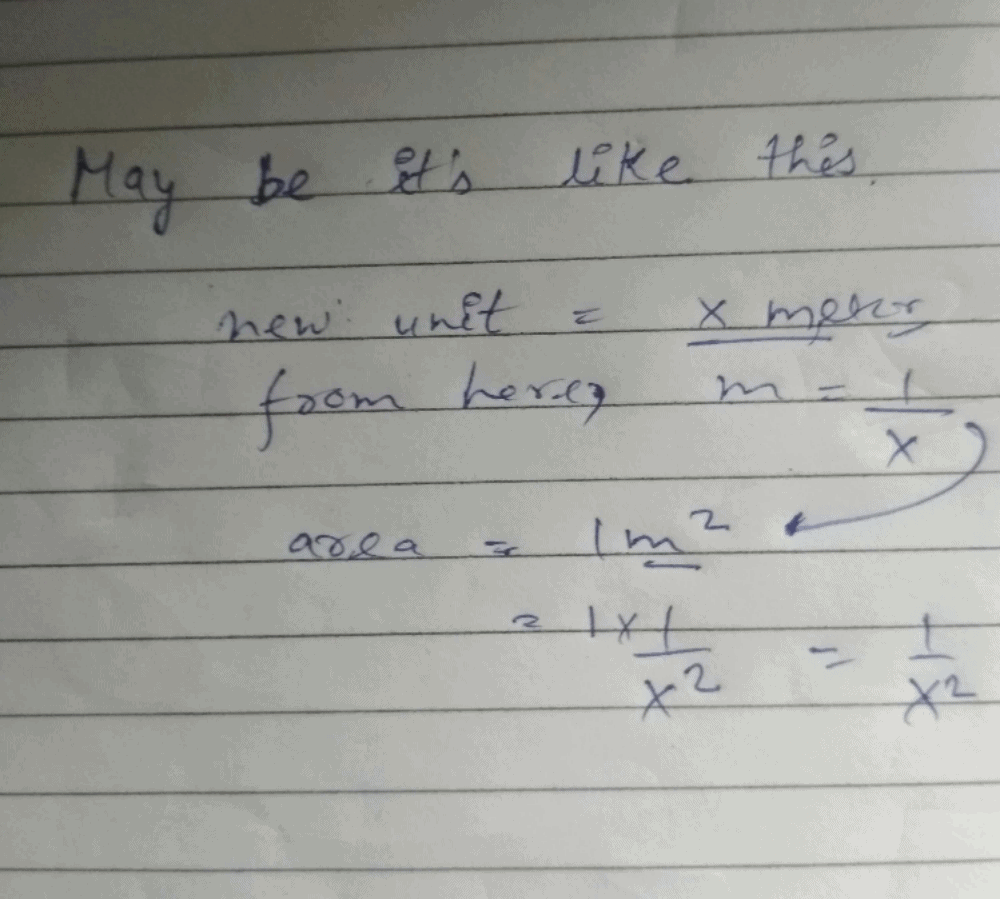 May be it's like this.
new unit = x meter
from here, m = 1/x
area = 1m²
= 1 x 1/x² = 1/x²